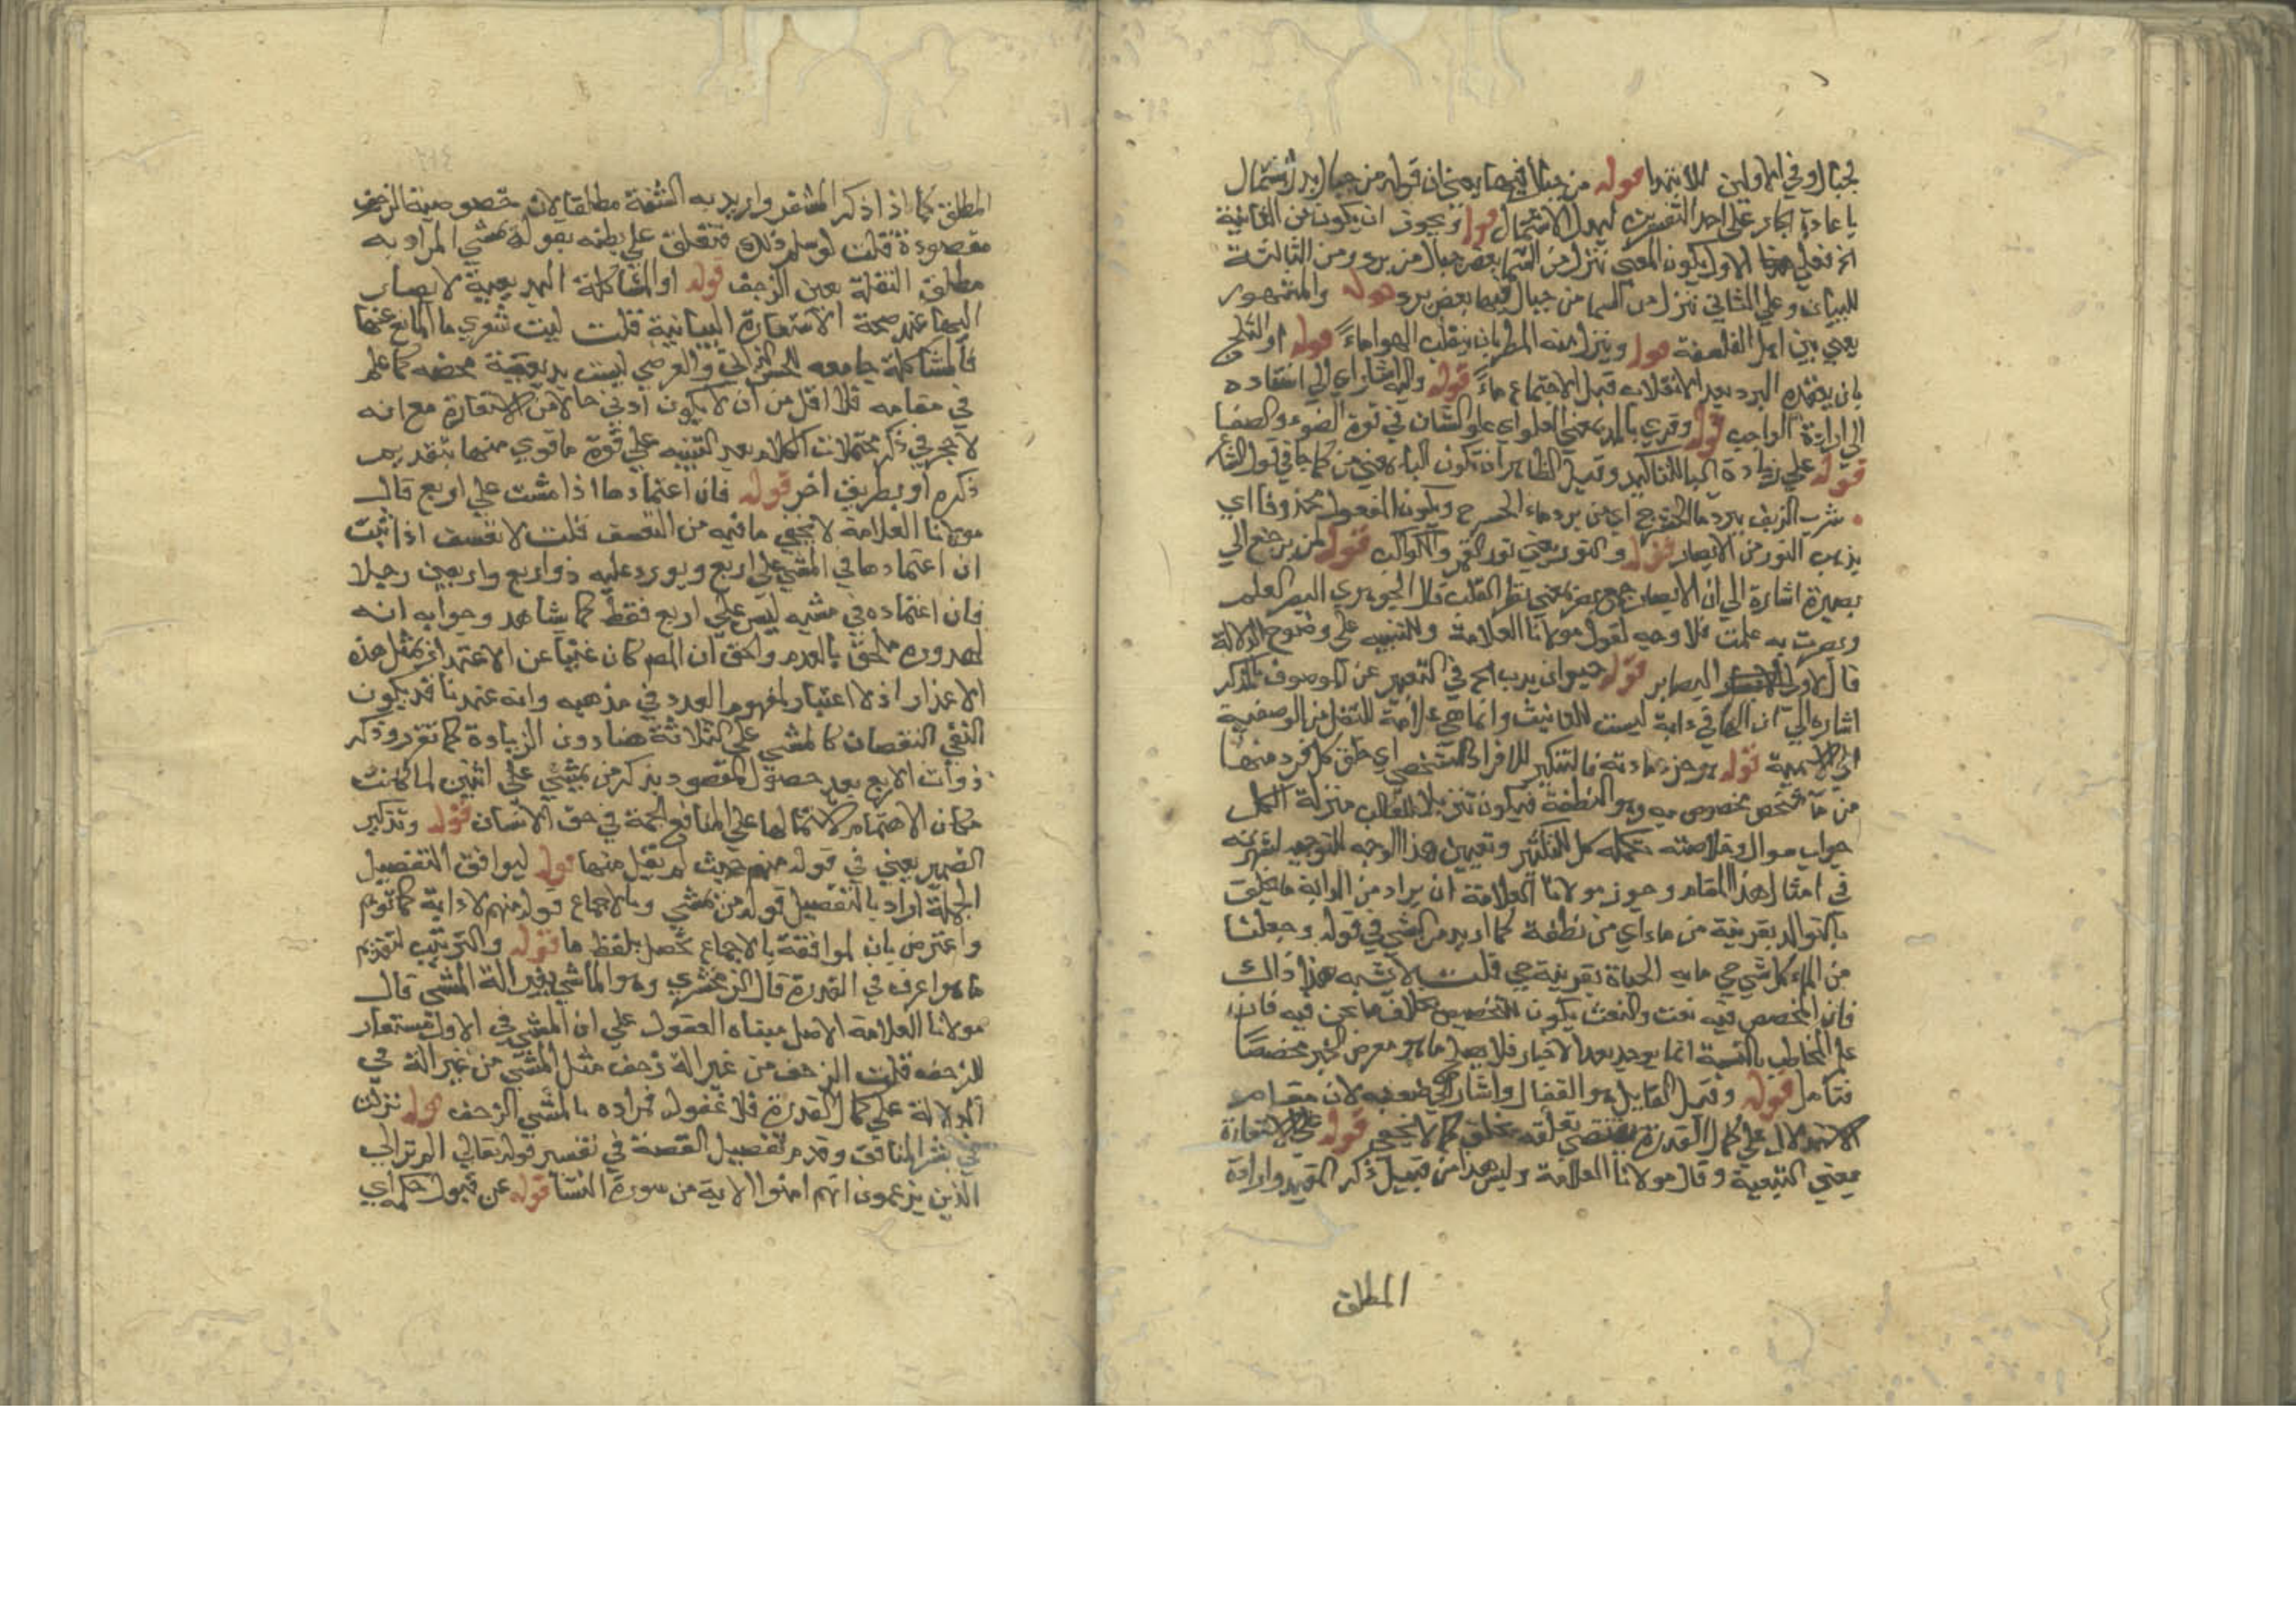 لجبال وفي الاولين للابتدا قوله من جبال فيها يعني ان قوله من جبال بدل اشتمال
باعادة الجار على احد التفسيرين لبدل الاشتمال قوله ويجوز ان يكون من الثانية
الاول يكون المعنى ننزل من السما بعض جبال من برد ومن الثالثة
للبيان وعلى الثاني ننزل من السما من جبال فيها بعض برد قوله والمشهور
يعني بين اهل الفلسفة قوله وينزل منه المطر بان ينقلب الهوا ماءً قوله او الثلج
بان يعقده البرد بعد الانقلاب قبل الاجتماع ماءً قوله واليه اشار اي الى استناده
الى ارادة الواجب قوله وقري بالمد بمعنى العلو اي علو الشان في قوة الضوء والصفا
قوله على زيادة البا للتاكيد وقيل الظاهر ان تكون الباء بمعنى من كما جا في قول الشاعر
شرب النزيف ببرد ما الحشرج اي من برد ماء الحشرج ويكون المفعول محذوفا اي
يذهب النور من الابصار قوله والنور يعني نور القمر والكواكب قوله لمن يرجع الى
بصيرة اشارة الى ان الابصار جمع بصر بمعنى نظر القلب قال الجوهري البصر العلم
وبصرت به علمت فلا وجه لقول مولانا العلامة وللتنبيه على وضوح الدلالة
قال لاولي الابصار البصاير قوله حيوان يدب الخ في التعبير عن الموصوف بالمذكر
اشارة الى ان الها في دابة ليست للتانيث وانما هي علامة للنقل من الوصفية
الى الاسمية قوله هو جزء مادته فالتنكير للافراد الشخصي اي خلق كل فرد منها
من ماء شخص مخصوص به وهو النطفة فيكون تنزيلا للغالب منزلة الكل
جواب سوال وخلاصته كلمة كل للتكثير وتعيين هذا الوجه للتوجيه لشهرته
في امثال هذا المقام وجوز مولانا العلامة ان يراد من الدابة ما يخلق
بالتوالد بقرينة من ماء اي من نطفة كما اريد من الشي في قوله وجعلنا
من الماء كل شي حي ما به الحياة بقرينة حي قلت لا يشبه هذا ذاك
فان المخصص فيه نعت والنعت يكون للتخصيص بخلاف ما نحن فيه فان
علم المخاطب بالنسبة انما يوجد بعد الاخبار فلا يصلح ما هو معرض الخبر مخصصا
فتامل قوله وقيل القايل هو القفال واشار الى ضعفه لان مقام
الاستدلال على كمال القدرة يقتضي تعلقه بخلق كما لا يخفى قوله على الاستعارة
بمعنى التبعية وقال مولانا العلامة وليس هذا من قبيل ذكر المقيد وارادة
المطلق
المطلق كما اذا ذكر المشفر واريد به الشفة مطلقا لان خصوصية الزحف
مقصودة قلت لو سلم ذلك فتعلق على بطنه بقوله يمشي المراد به
مطلق النقلة يعين الزحف قوله او المشاكلة البديعية لا يصار
اليها عند صحة الاستعارة البيانية قلت ليت شعري ما المانع عنها
فالمشاكلة جامعه للحسن الذاتي والعرضي ليست بديعية محضه كما علم
في مقامه فلا اقل من ان لا يكون ادنى حالا من الاستعارة مع انه
لا حجر في ذكر محتملات الكلام بعد التنبيه على قوة ما قوي منها بتقديم
ذكره او بطريق اخر قوله فان اعتمادها اذا مشت على اربع قال
مولانا العلامة لا يخفى ما فيه من التعسف قلت لا تعسف اذا ثبت
ان اعتمادها في المشي على اربع ويورد عليه ذو اربع واربعين رجلا
فان اعتماده في مشيه ليس على اربع فقط كما يشاهد وجوابه انه
لندوره ملحق بالعدم والحق ان المص كان غنيا عن الاعتذار بمثل هذه
الاعذار اذ لا اعتبار لمفهوم العدد في مذهبه وانه عندنا قد يكون
النفي النقصان كالمشي على الثلاثة هنا دون الزيادة كما تقرر وذكر
ذوات الاربع بعد حصول المقصود بذكر من يمشي على اثنين لما كانت
مكان الاهتمام لاشتمالها على المنافع الجمة في حق الانسان قوله وتذكير
الضمير يعني في قوله منهم حيث لم يقل منها قوله ليوافق التفصيل
الجملة اراد بالتفصيل قوله من يمشي وبالاجماع قوله منهم لا دابة كما توهم
واعترض بان الموافقة بالاجماع تحصل بلفظ ما قوله والترتيب لتقديم
ما هو اعرف في القدرة قال الزمخشري وهو الماشي بغير الة المشي قال
مولانا العلامة الاصل مبناه الغفول على ان المشي في الاول مستعار
للزحف قلت الزحف من غير الة زحف مثل المشي من غير الة في
الدلالة على كمال القدرة فلا غفول فمراده بالمشي الزحف قوله نزلت
في بشر المنافق وقدم تفصيل القصة في تفسير قوله تعالى الم تر الى
الذين يزعمون انهم امنوا الاية من سورة النسا قوله عن قبول حكمه اي